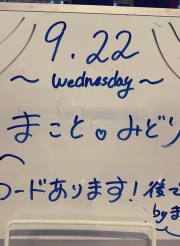 9.22
～ wednesday ～
まこと♡みどり
コードあります！後で
by ま